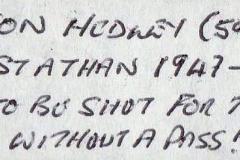 ON HEDWEY (59
ST ATHAN 1947-
TO BE SHOT FOR T
WITHOUT A PASS!